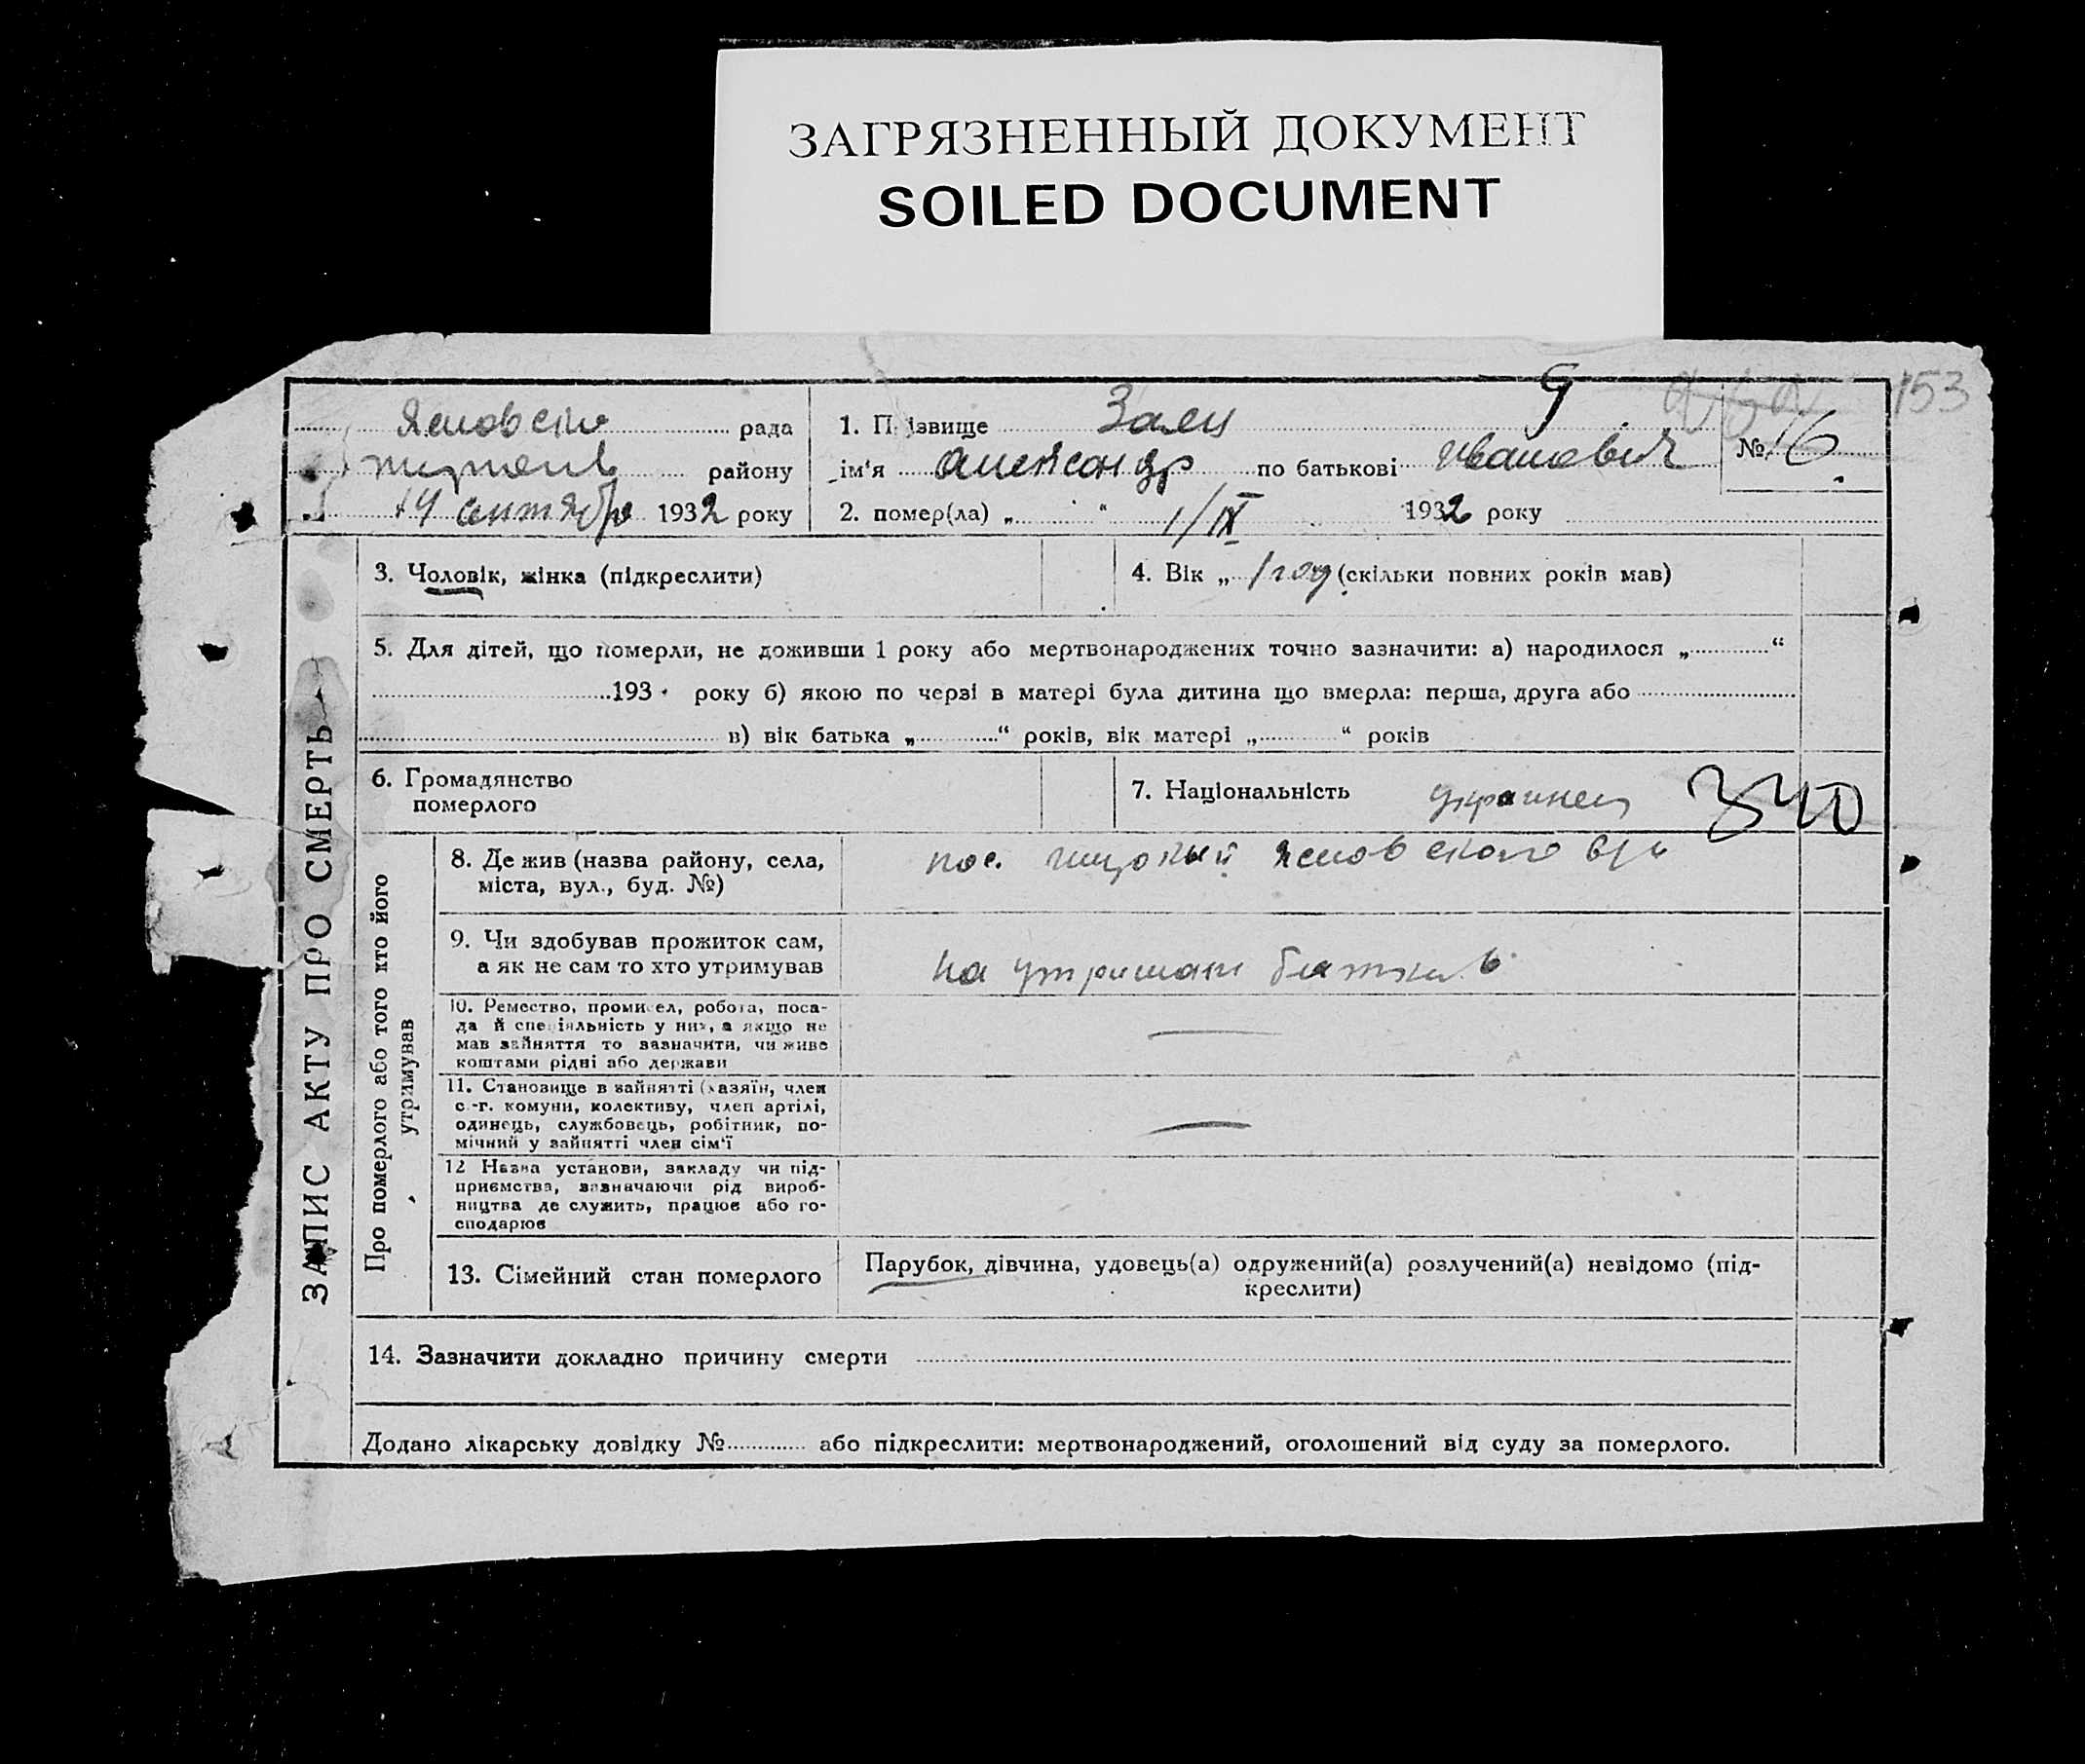 ЗАГРЯЗНЕННЫЙ ДОКУМЕНТ
SOILED DOCUMENT
153
рада
району
14 сентября 1932 року
1. Прізвище Заец
№ 16
ім'я Александр по батькові Иванович
2. помер(ла) „ “ 1/IX 1932 року
ЗАПИС АКТУ ПРО СМЕРТЬ
3. Чоловік, жінка (підкреслити)
4. Вік „ 1 год (скільки повних років мав)
5. Для дітей, що померли, не доживши 1 року або мертвонароджених точно зазначити: а) народилося „ “
193 року б) якою по черзі в матері була дитина що вмерла: перша, друга або
в) вік батька „ “ років, вік матері „ “ років
6. Громадянство
померлого
7. Національність украинец
340
Про померлого або того хто його
утримував
8. Де жив (назва району, села,
міста, вул., буд. №)
пос.
9. Чи здобував прожиток сам,
а як не сам то хто утримував
на утриман батьків
10. Ремество, промисел, робота, поса-
да й спеціяльність у них, а якщо не
мав зайняття то зазначити, чи живе
коштами рідні або держави
11. Становище в зайнятті (хазяїн, член
с.-г. комуни, колективу, член артілі,
одинець, службовець, робітник, по-
мічний у зайнятті член сім'ї
12 Назва установи, закладу чи під-
приємства, зазначаючи рід вироб-
ництва де служить, працює або го-
сподарює
13. Сімейний стан померлого
Парубок, дівчина, удовець(а) одружений(а) розлучений(а) невідомо (під-
креслити)
14. Зазначити докладно причину смерти
Додано лікарську довідку № або підкреслити: мертвонароджений, оголошений від суду за померлого.